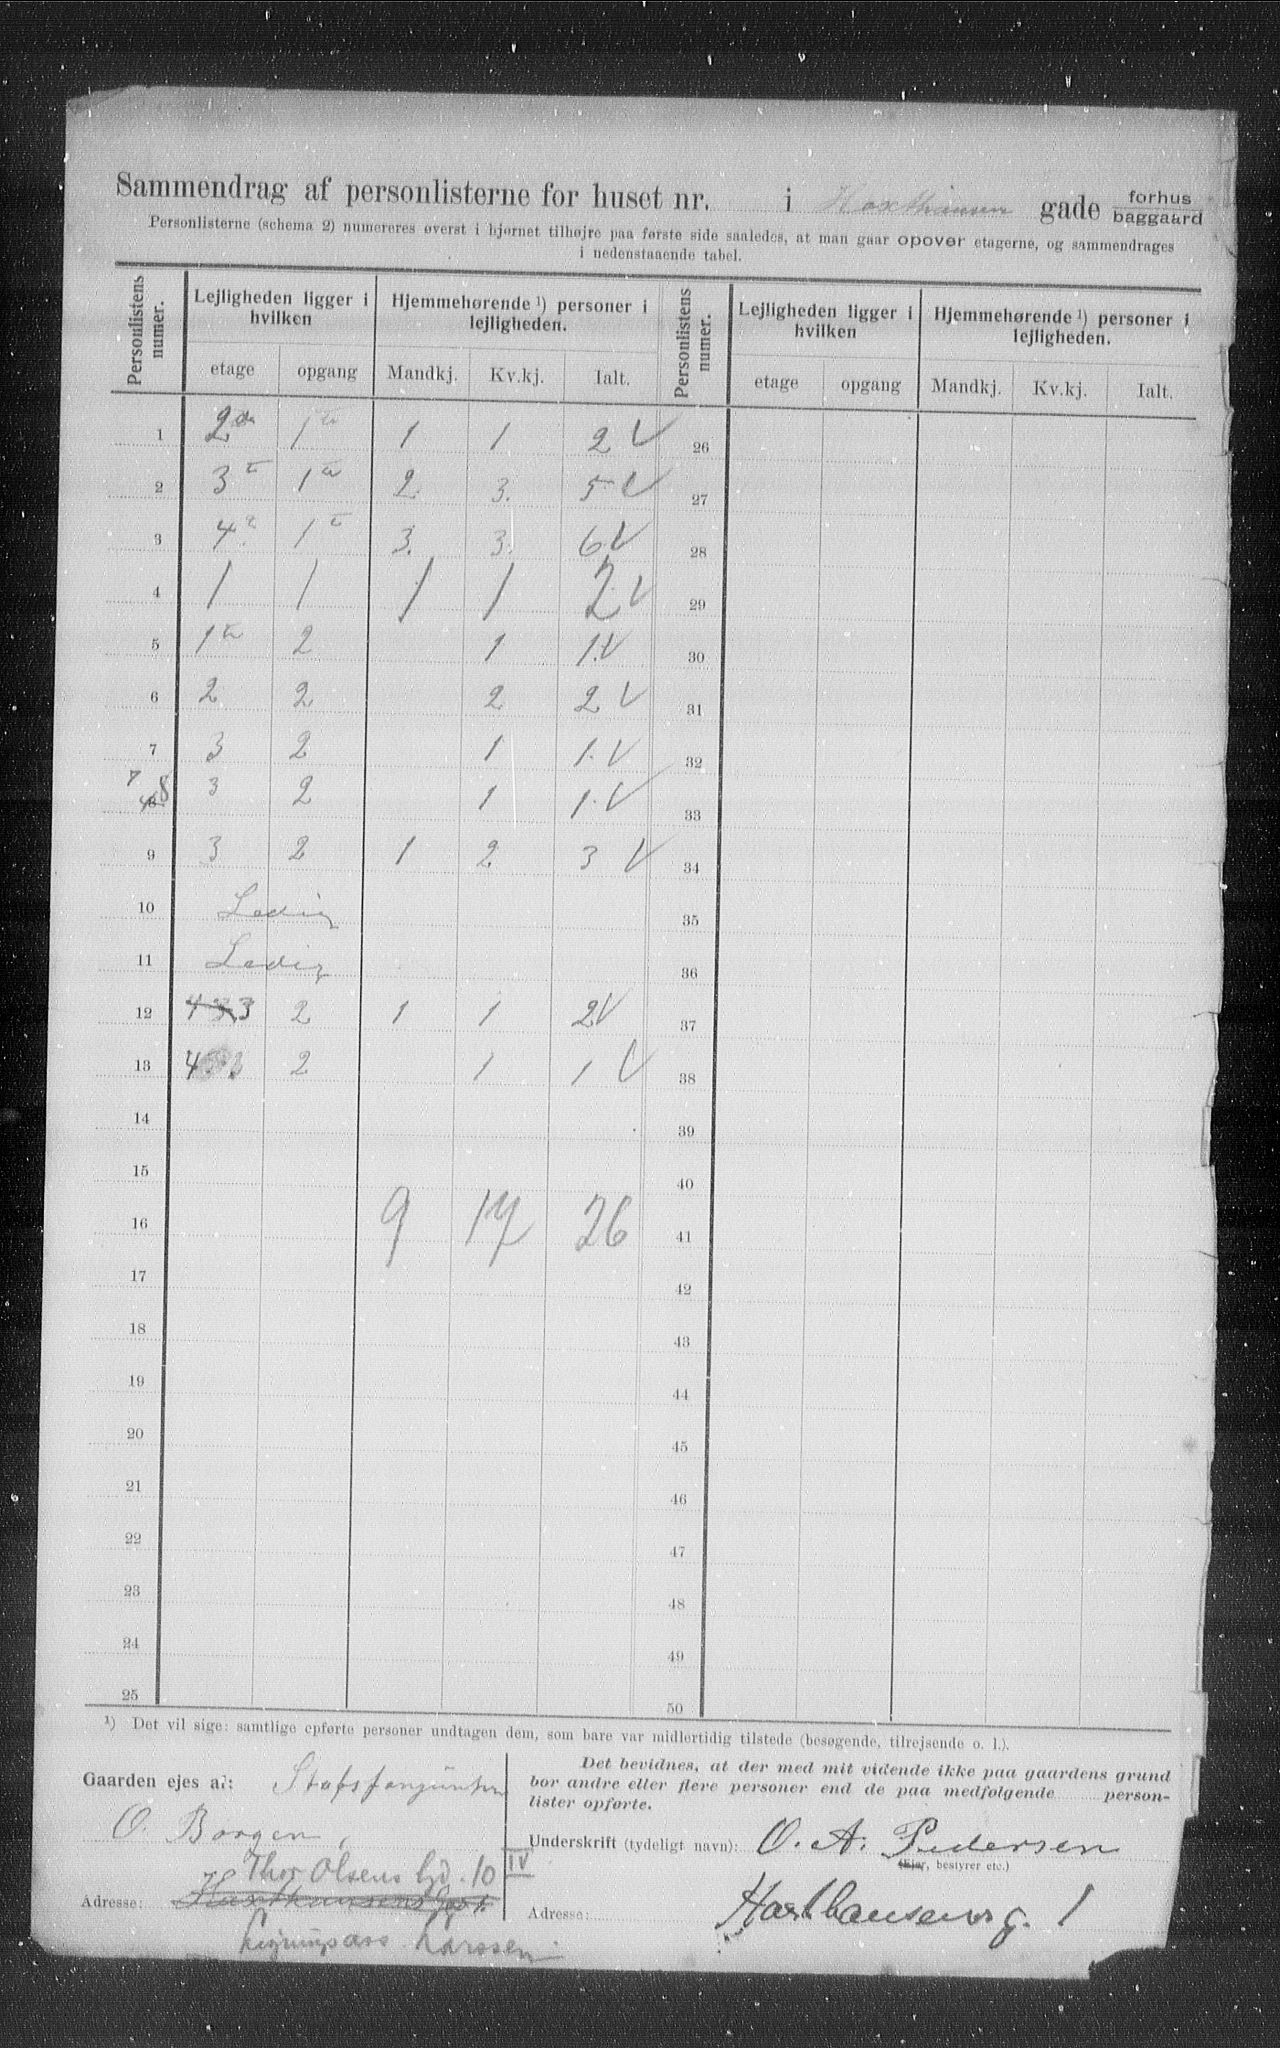 Sammendrag af personlisterne for huset nr. i Haxthausen gade forhus
baggaard
Personlisterne (schema 2) numereres øverst i hjørnet tilhøjre paa første side saaledes, at man gaar opover etagerne, og sammendrages
i nedenstaaende tabel.
Personlistens numer. Lejligheden ligger i hvilken Hjemmehørende ¹) personer i lejligheden. Personlistens numer. Lejligheden ligger i hvilken Hjemmehørende ¹) personer i lejligheden.
etage opgang Mandkj. Kv.kj. Ialt. etage opgang Mandkj. Kv.kj. Ialt.
1 2den 1te 1 1 2 V 26
2 3te 1te 2. 3. 5 V 27
3 4de 1te 3. 3. 6 V 28
4 1 1 1 1 2 V 29
5 1te 2 1 1. V 30
6 2 2 2 2 V 31
7 3 2 1 1. V 32
7 8 3 2 1 1. V 33
9 3 2 1 2 3 V 34
10 Ledig 35
11 Ledig 36
12 4 3 3 2 1 1 2 V 37
13 4 3 2 1 1 V 38
14 39
15 40
16 9 17 26 41
17 42
18 43
19 44
20 45
21 46
22 47
23 48
24 49
25 50
¹) Det vil sige: samtlige opførte personer undtagen dem, som bare var midlertidig tilstede (besøgende, tilrejsende o. l.).
Gaarden ejes af:
O. Borgen,
Thor Olsens gd. 10 IV
Adresse: Haxthausens gad 1.
Larssen
Det bevidnes, at der med mit vidende ikke paa gaardens grund
bor andre eller flere personer end de paa medfølgende person-
lister opførte.
Underskrift (tydeligt navn): O. A. Pedersen
(Ejer, bestyrer etc.)
Adresse: Haxthausens g. 1